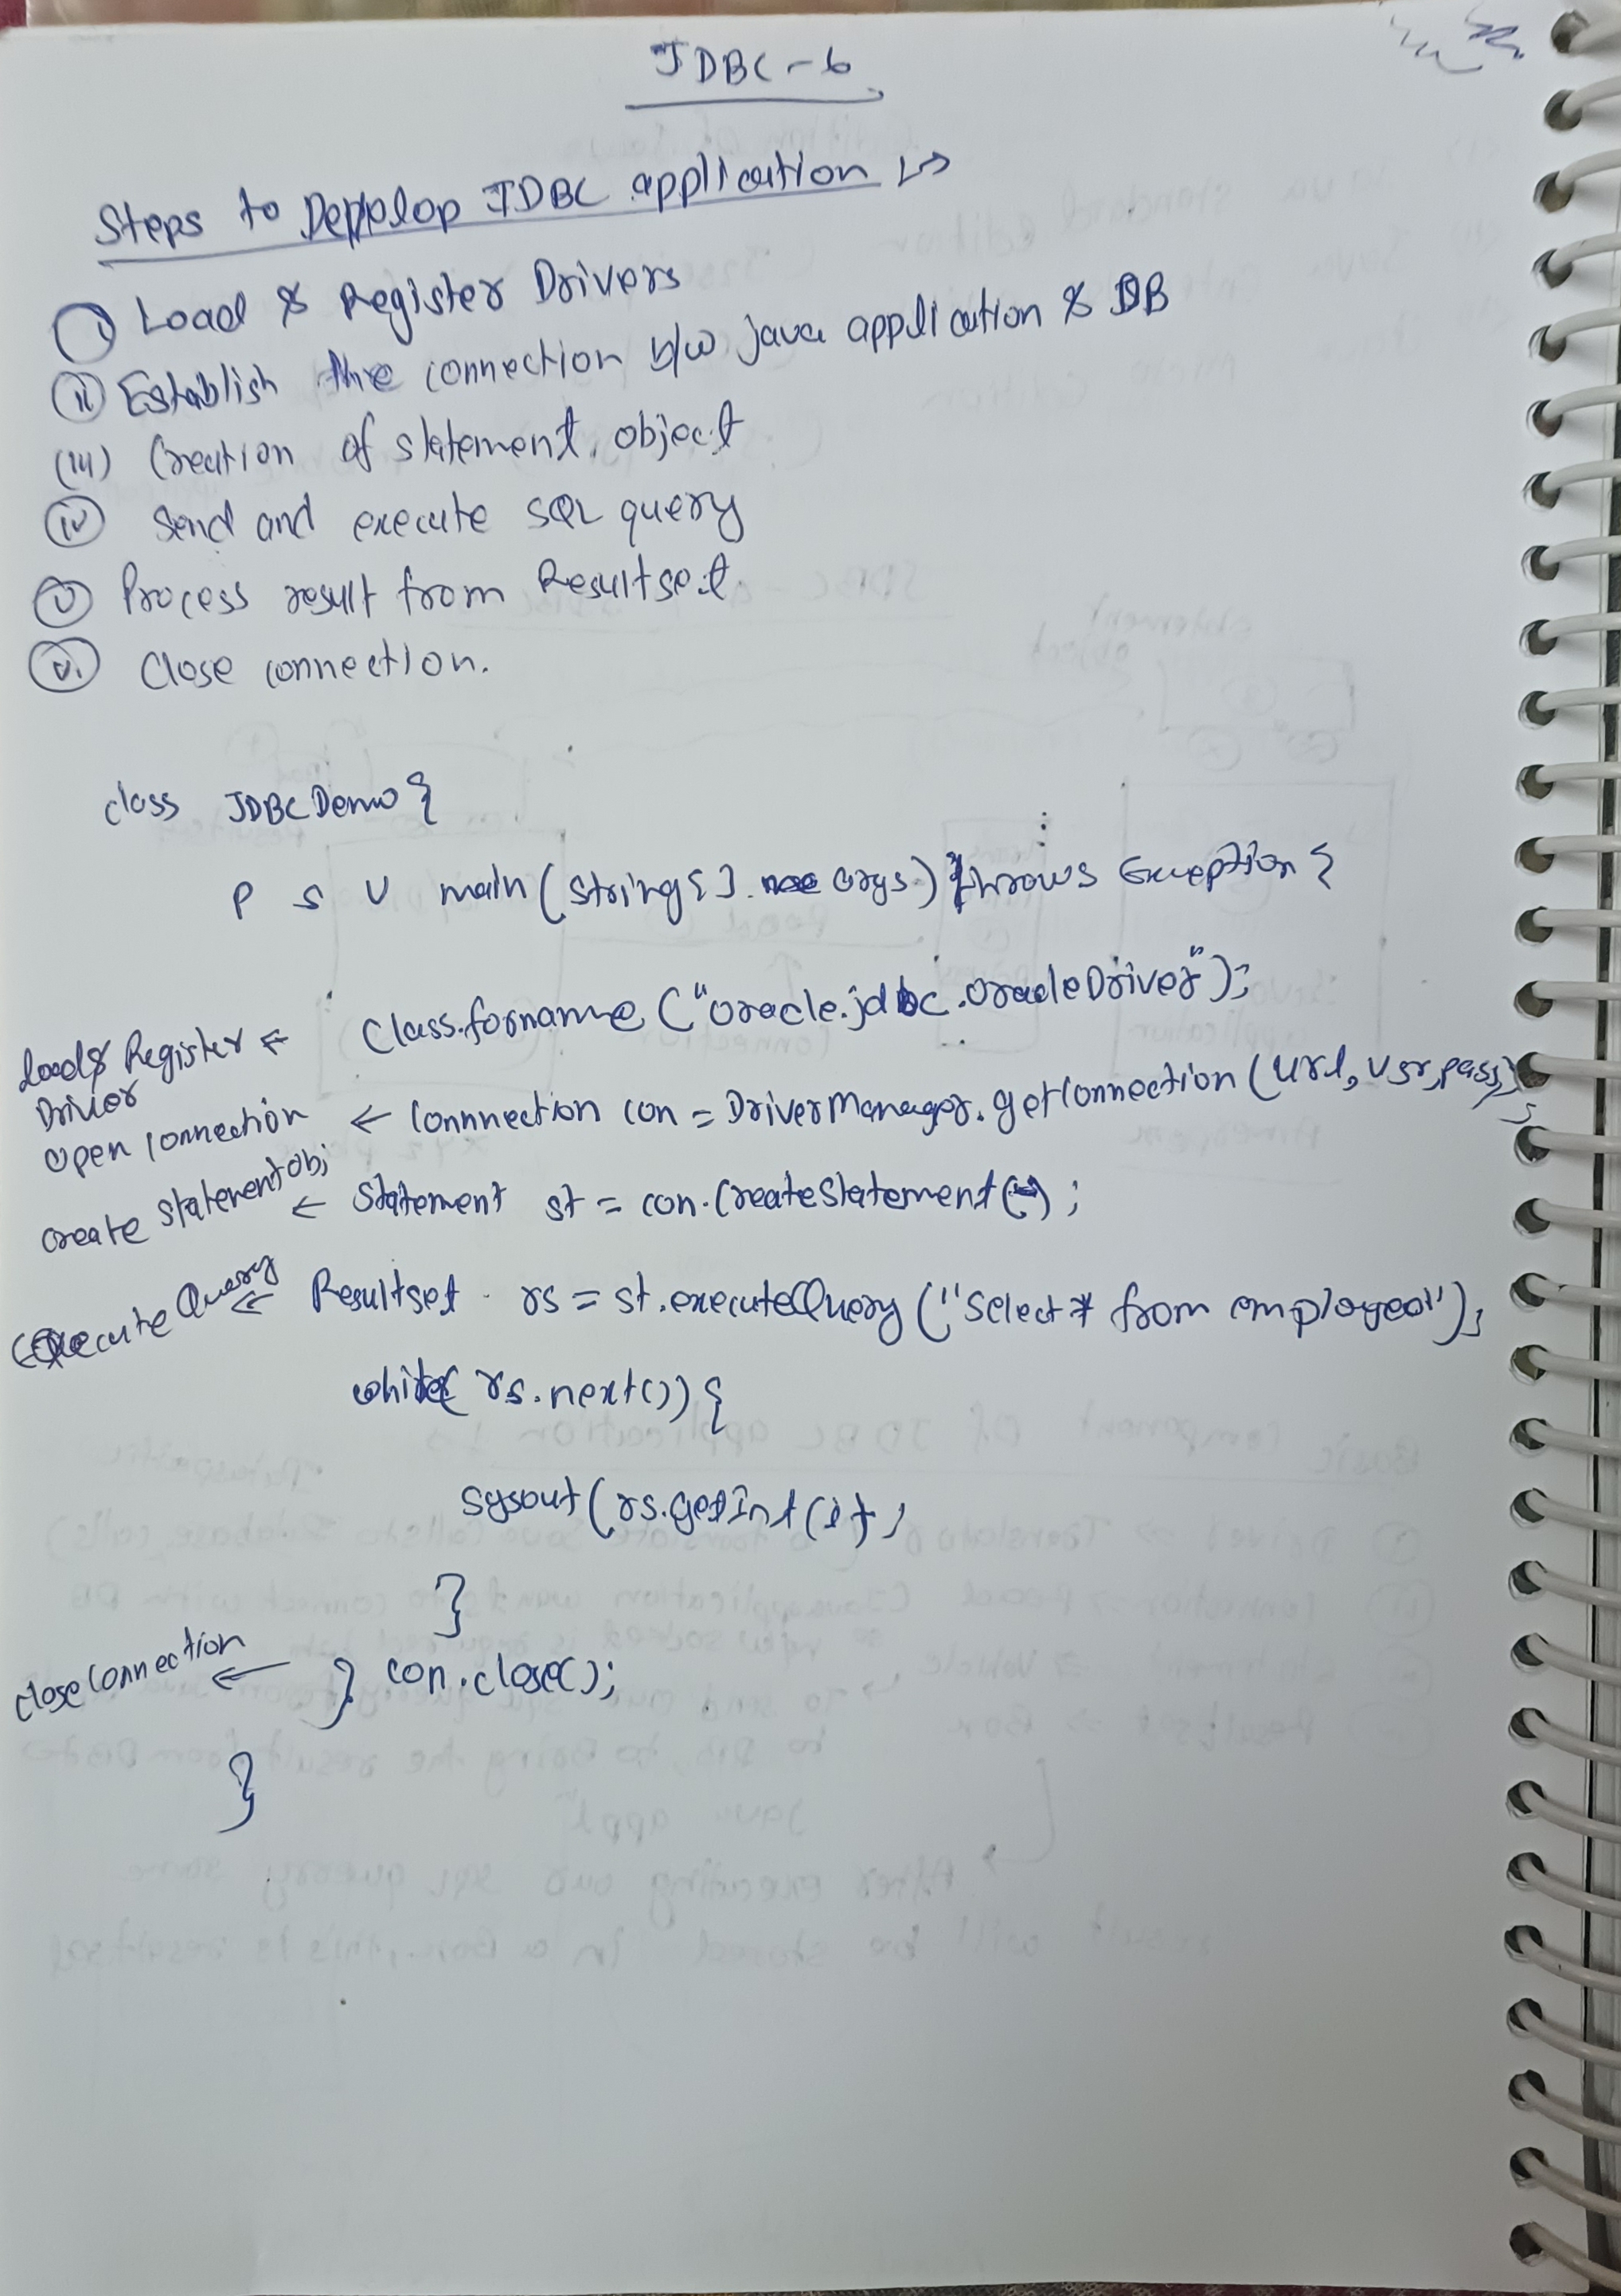 JDBC-6
Steps to Devlop JDBC application ↳
(i) Load & Register Drivers
(ii) Establish the connection b/w java application & DB
(iii) Creation of statement object
(iv) Send and execute SQL query
(v) Process result from Resultset.
(vi) Close connection.
class JDBCDemo {
P S V main(String[] args) throws Exception {
Load & Register Driver ← Class.forname("oracle.jdbc.OracleDriver");
open connection ← Connnection con = DriverManager.getConnection(url, usr, pass);
create statement obj ← Statement st = con.CreateStatement();
Execute Query ← Resultset rs = st.executeQuery("Select * from employee");
while(rs.next()) {
sysout(rs.getInt(1);
}
close connection ← } con.close();
}